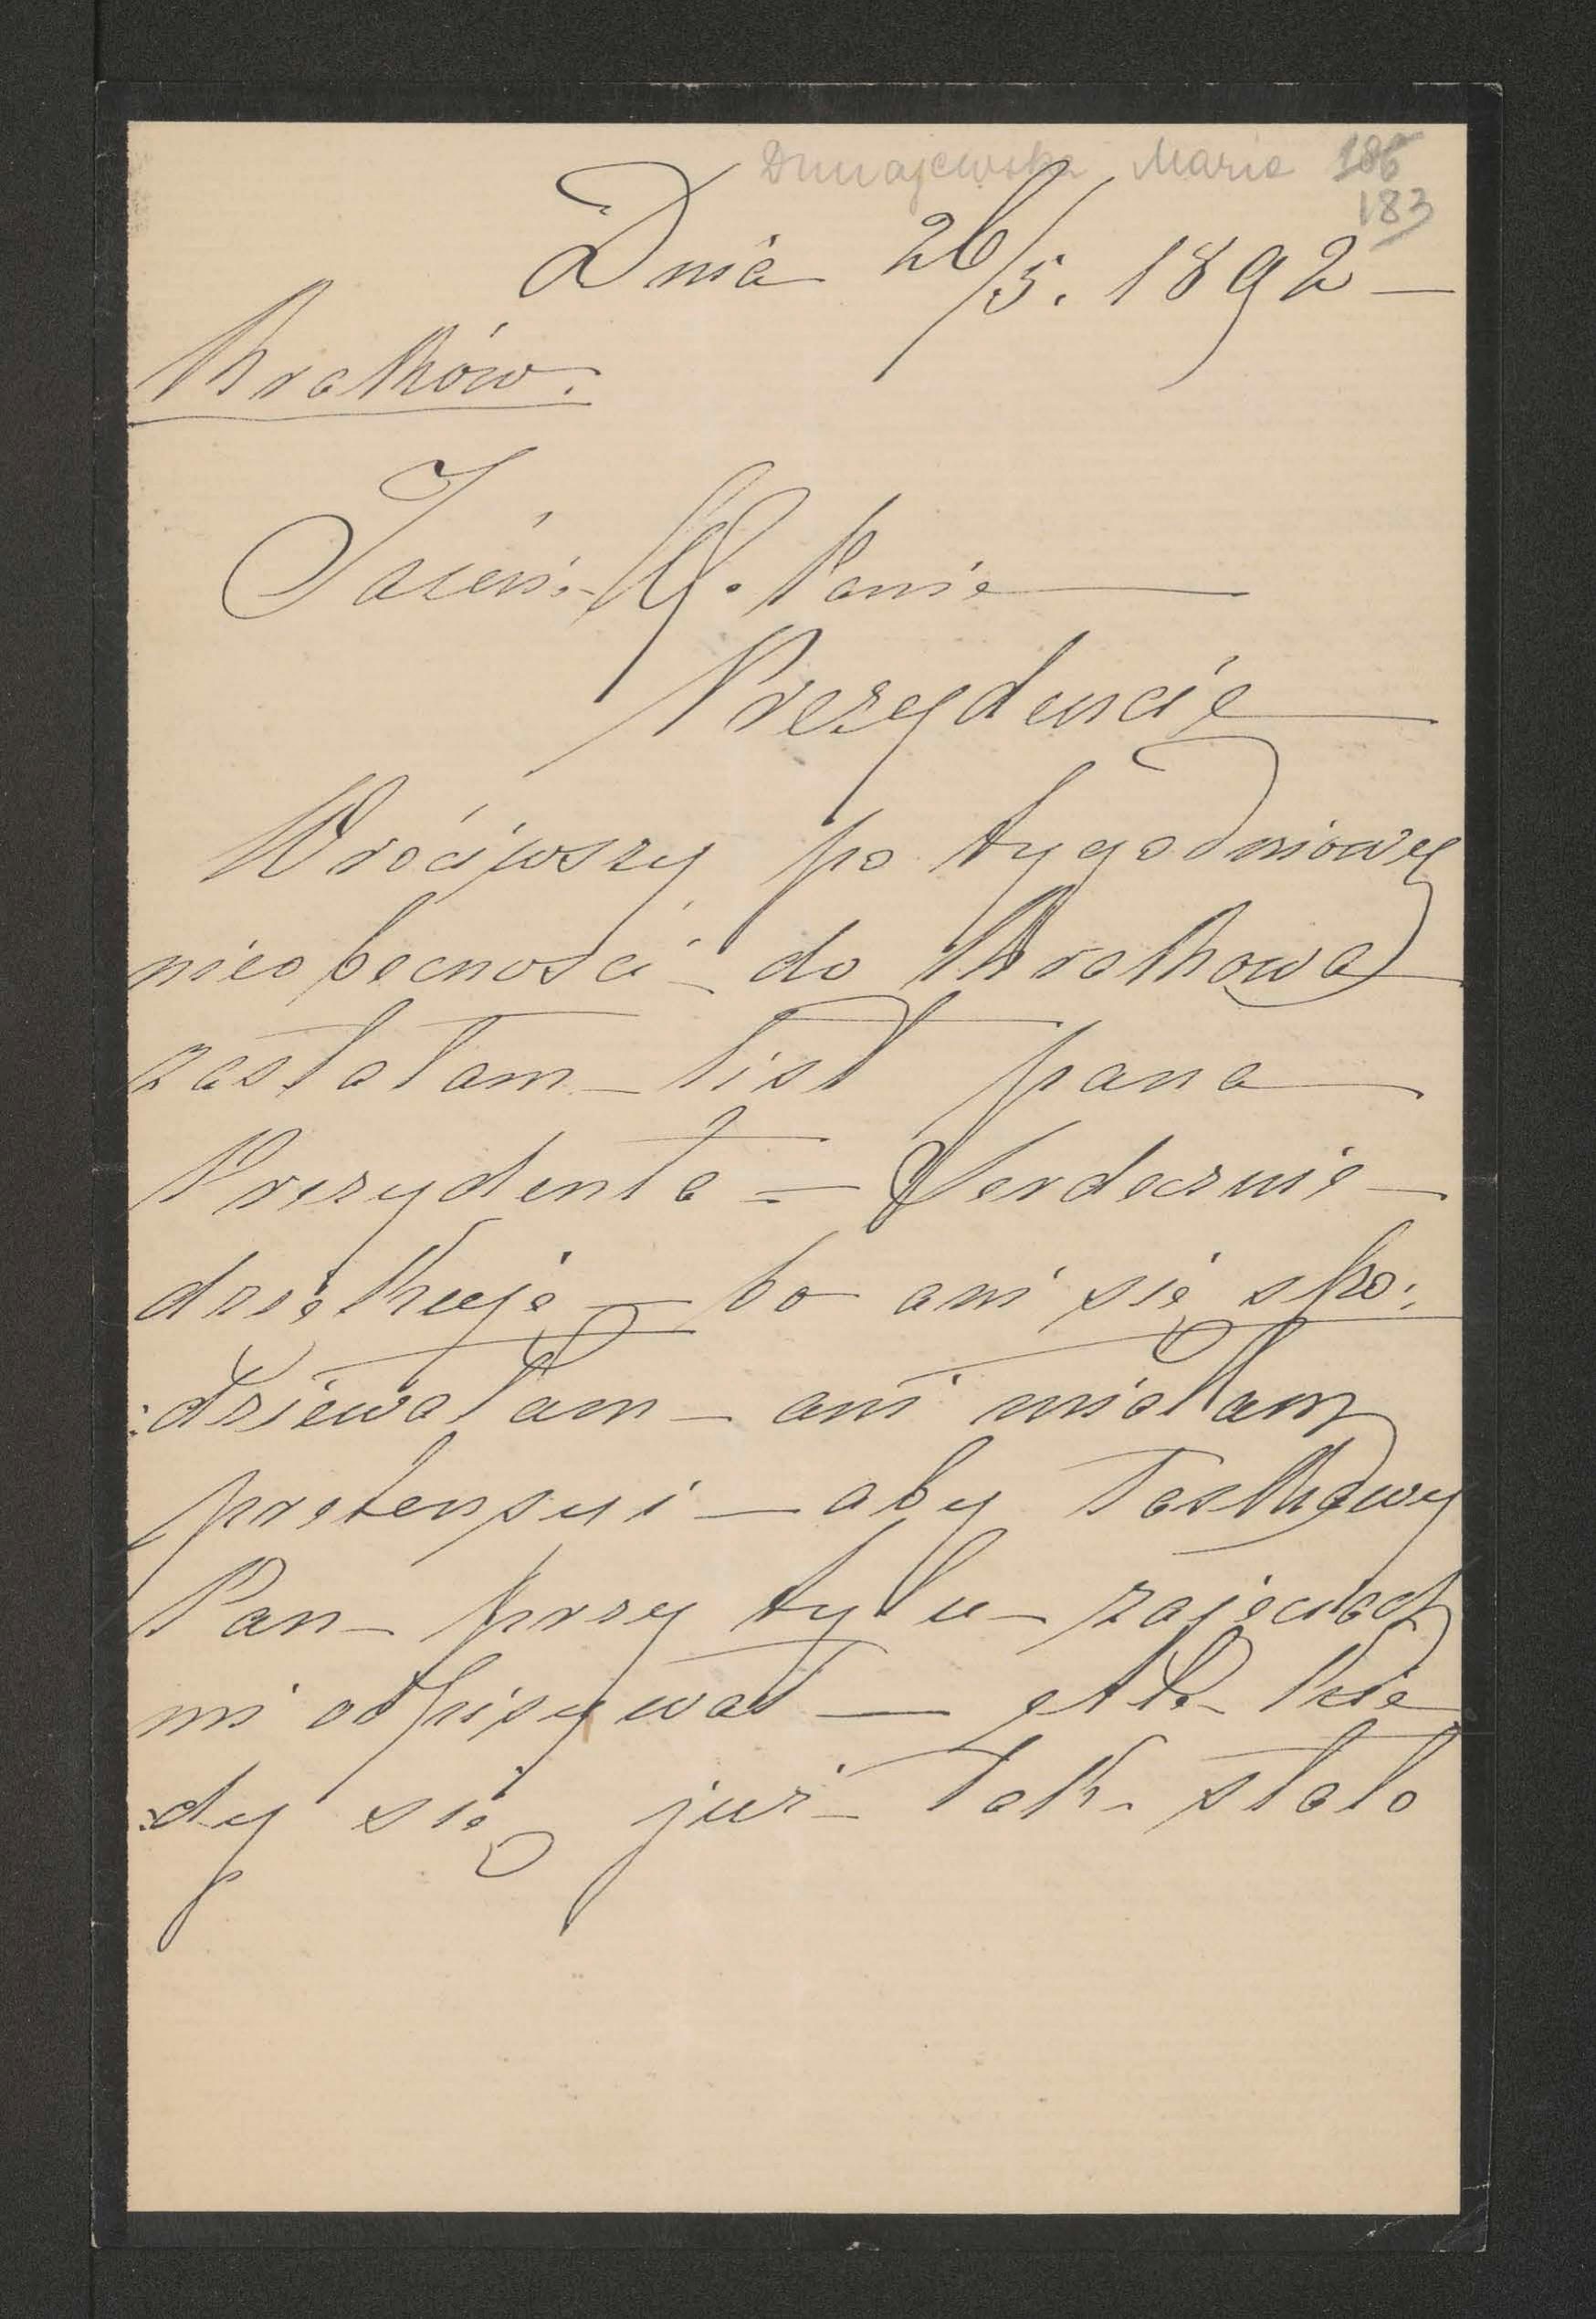 Dunajewska Maria 186
183
Dnia 26/5. 1892 –
Kraków.
Jaśń. W. Panie
Prezydencie
Wróciwszy po tygodniowej
nieobecności – do Krakowa
zastałam – list pana
Prezydenta – Serdecznie –
dziękuję – bo ani się spo:
:dziewałam – ani miałam
pretensyi – aby Łaskawy
Pan – przy tylu – zajęciach
mi odpisywał – Kie
:dy się już – tak – stało